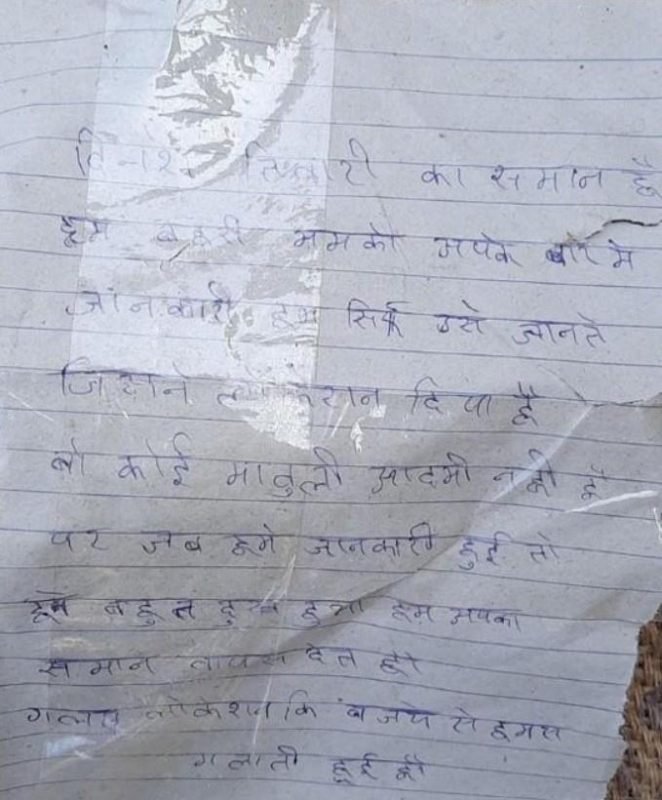 तिवारी का समान है
हम बहरी हमको अपके बारे मे
जानकारी हम सिर्फ उसे जानते
जिसने लोकेशन दिया है
बो कोई मावुली आदमी नही है
पर जब हमे जानकारी हुई तो
हमे बहुत दुख हुआ हम अपका
समान वापस देत है
गलत लोकेशन कि बजये से हमस
गलाती हुई है